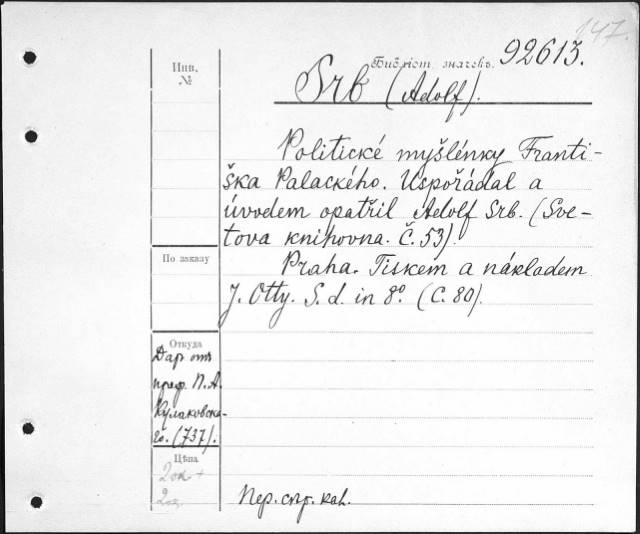 147.
Инв.
№
Библіот. значекъ. 92613.
Srb (Adolf).
Politické myšlénky Franti-
ška Palackého. Uspořádal a
úvodem opatřil Adolf Srb. (Sve-
tova knihovna. Č. 53).
По заказу
Praha. Tiskem a nákladem
J. Otty. S. d. in 8º. (C. 80).
Откуда
Даръ отъ
проф. П. А.
Кулаковска-
го. (737).
Цѣна
Пер. сър. кан.